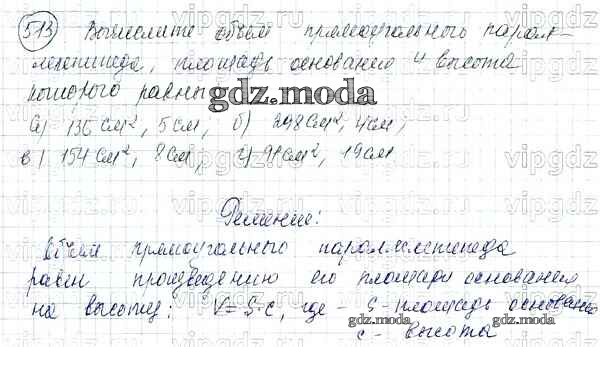 513 Вычислите объём прямоугольного парал-
лелепипеда, площадь основания и высота
которого равны
gdz.moda
а) 136 см², 5 см, б) 298 см², 4 см;
в) 154 см², 8 см, г) 91 см², 19 см
Решение:
Объём прямоугольного параллелепипеда
равен произведению его площади основания
на высоту: V=S·c, где - S-площадь основания
gdz.moda gdz.moda
c- высота